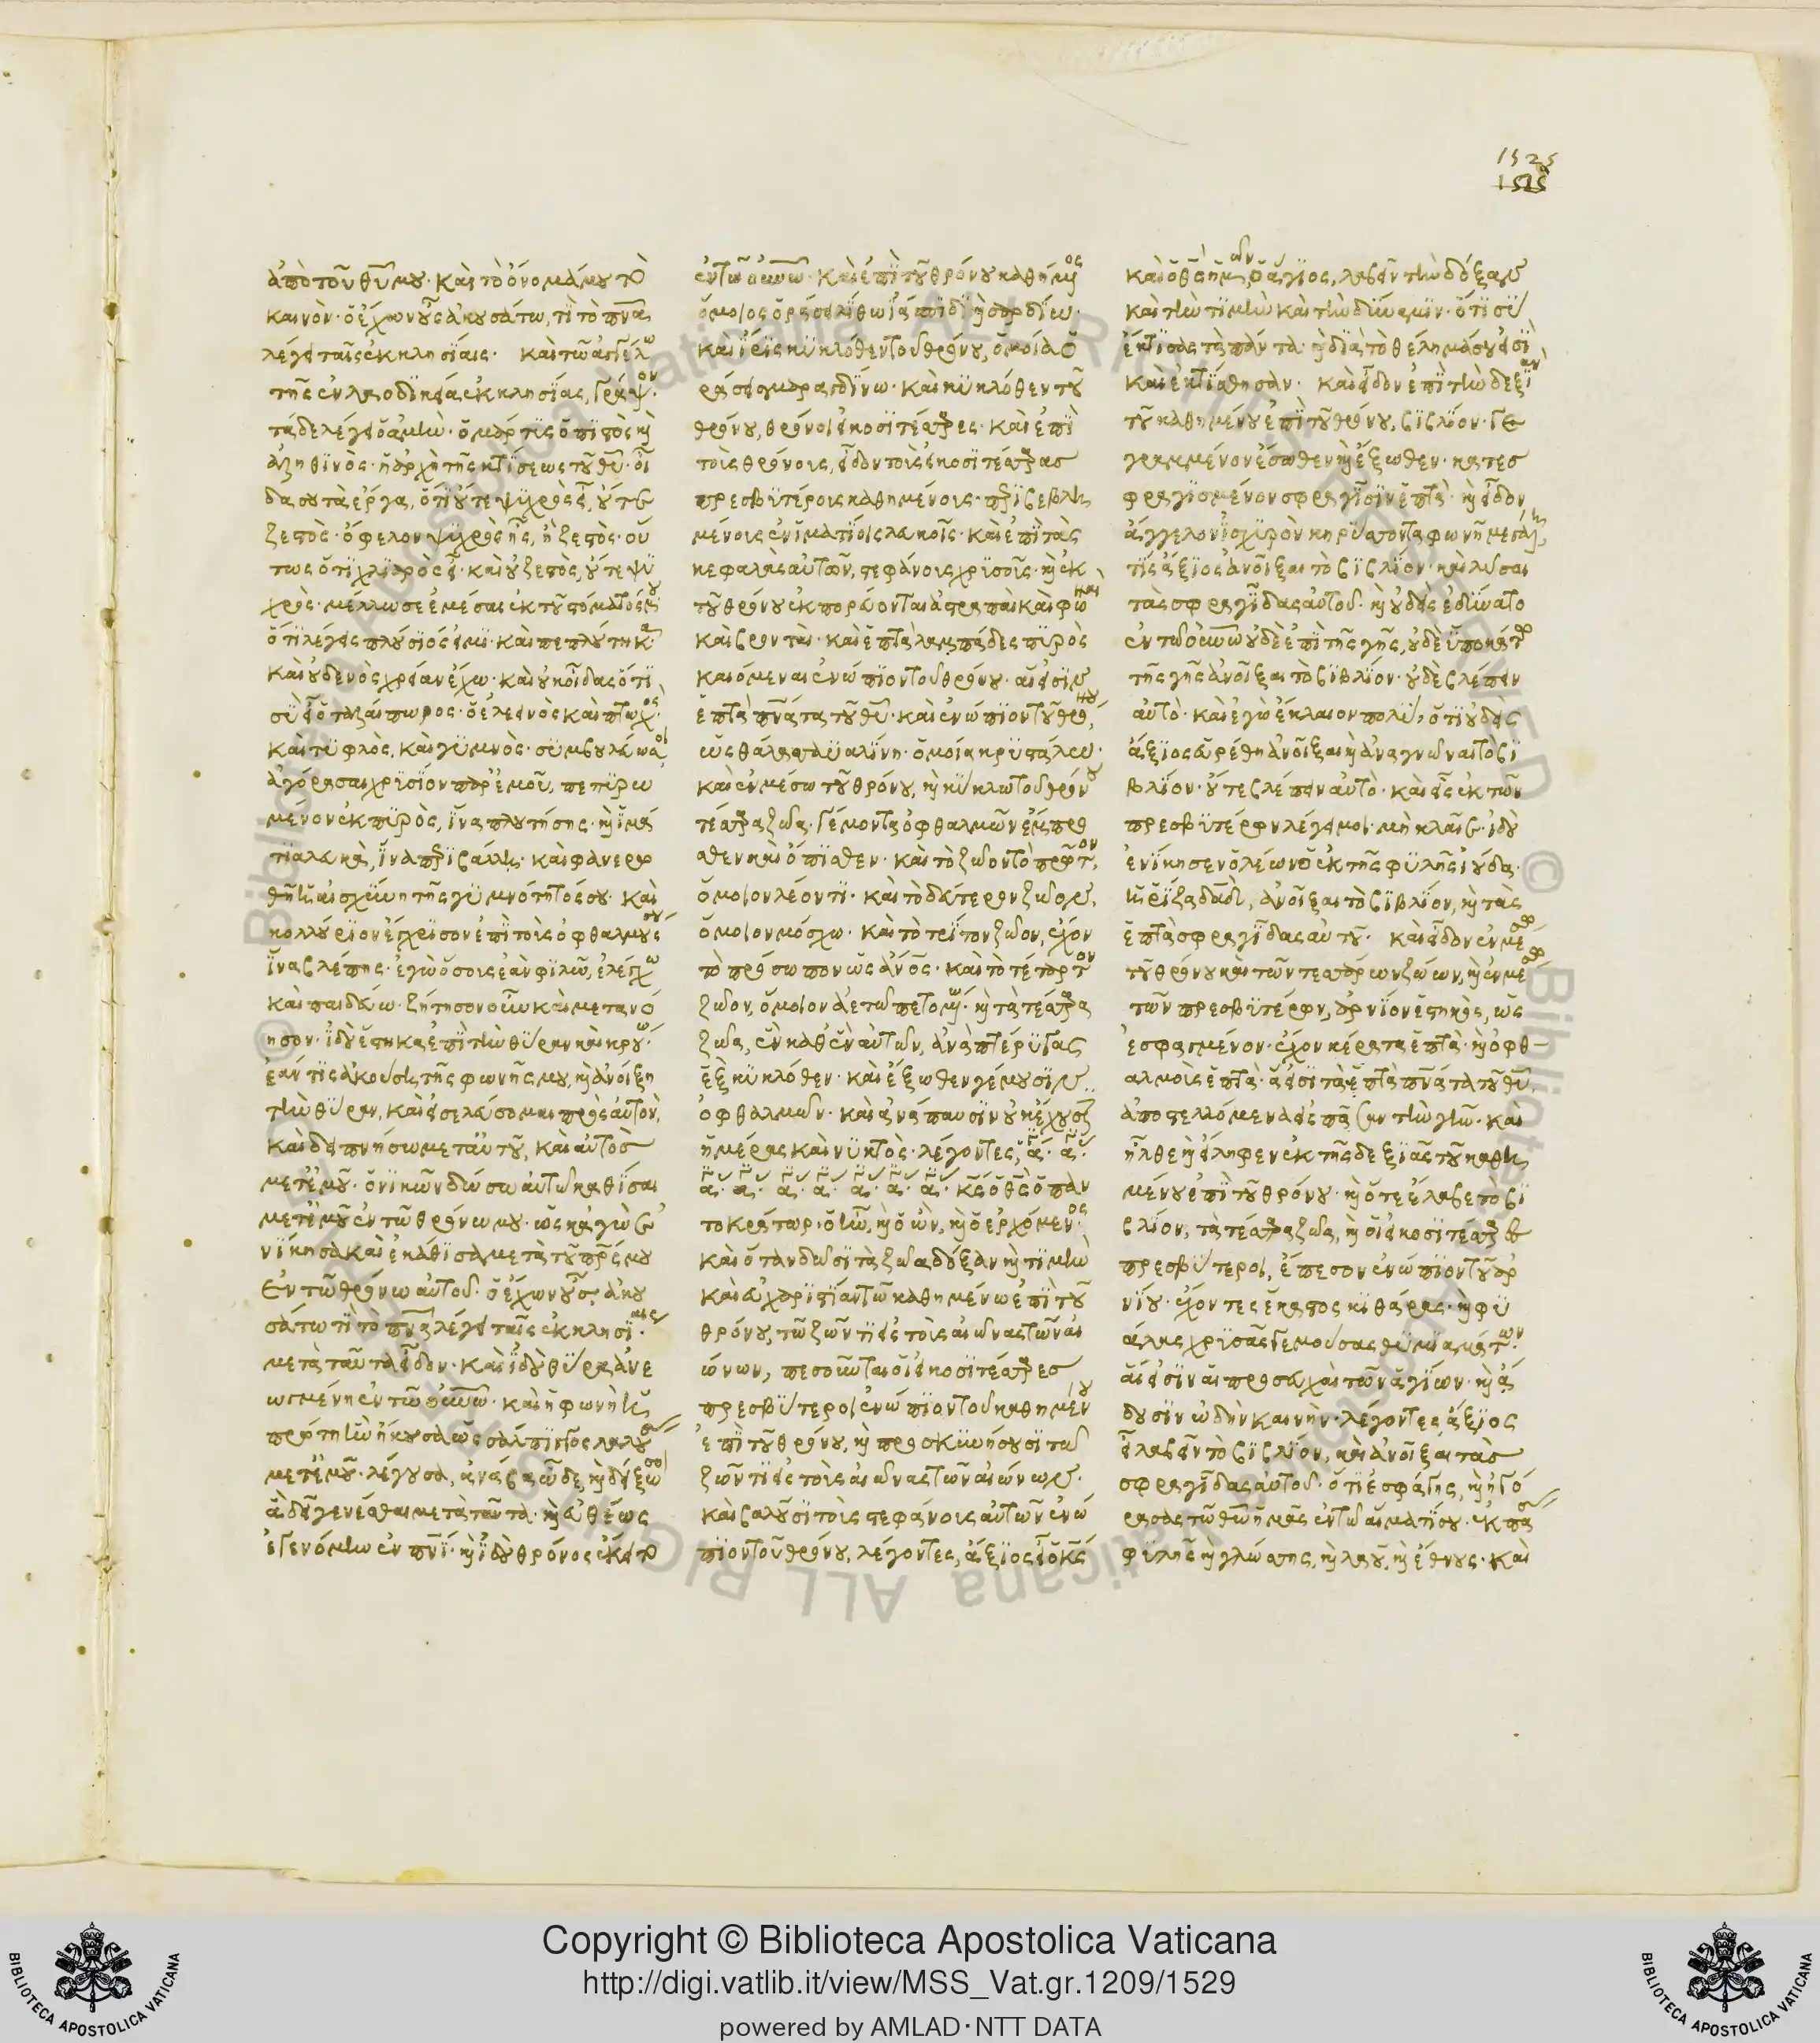 1525
1515
ἀπὸ τοῦ θῦ μου· καὶ τὸ ὄνομά μου τὸ
καινὸν· ὁ ἔχων οὖς ἀκουσάτω, τί τὸ πνᾶ
λέγει ταῖς ἐκκλησίαις· καὶ τῶ ἀγγέλω
τῆς ἐν λαοδικεία ἐκκλησίας, γράψον·
τάδε λέγει ὁ ἀμὴν· ὁ μάρτυς ὁ πιστὸς καὶ
ἀληθινὸς· ἡ ἀρχὴ τῆς κτίσεως τοῦ θῦ· οἶ
δα σου τὰ ἔργα, ὅτι οὔτε ψυχρὸς εἶ, οὔτε
ζεστὸς· ὄφελον ψυχρὸς ἦς, ἢ ζεστὸς· οὕ
τως ὅτι χλιαρὸς εἶ· καὶ οὐ ζεστὸς, οὔτε ψυ
χρὸς· μέλλω σε ἐμέσαι ἐκ τοῦ στόματός μου
ὅτι λέγεις πλούσιός εἰμι· καὶ πεπλούτηκα·
καὶ οὐδενὸς χρείαν ἔχω· καὶ οὐκ οἶδας ὅτι
σὺ εἶ ὁ ταλαίπωρος· ὁ ἐλεεινὸς καὶ πτωχὸς·
καὶ τυφλὸς, καὶ γυμνὸς· συμβουλεύω σοι
ἀγόρασαι χρυσίον παρ' ἐμοῦ, πεπυρω
μένον ἐκ πυρὸς, ἵνα πλουτήσης· καὶ ἱμά
τια λευκὰ, ἵνα περιβάλλη· καὶ φανερω
θῆ ἡ αἰσχύνη τῆς γυμνότητός σου· καὶ
κολλύριον ἔγχρισον ἐπὶ τοὺς ὀφθαλμούς σου
ἵνα βλέπης· ἐγὼ ὅσους ἐὰν φιλῶ, ἐλέγχω
καὶ παιδεύω· ζήτησον οὖν καὶ μετανό
ησον· ἰδοὺ ἕστηκα ἐπὶ τὴν θύραν καὶ κρούω·
ἐάν τις ἀκούση τῆς φωνῆς μου, καὶ ἀνοίξη
τὴν θύραν, καὶ εἰσελεύσομαι πρὸς αὐτὸν,
καὶ δειπνήσω μετ' αὐτοῦ, καὶ αὐτὸς
μετ' ἐμοῦ· ὁ νικῶν δώσω αὐτῶ καθίσαι
μετ' ἐμοῦ ἐν τῶ θρόνω μου· ὡς κἀγὼ ἐ
νίκησα καὶ ἐκάθισα μετὰ τοῦ πρς μου
ἐν τῶ θρόνω αὐτοῦ· ὁ ἔχων οὖς, ἀκου
σάτω τί τὸ πνᾶ λέγει ταῖς ἐκκλησίαις·
μετὰ ταῦτα εἶδον· καὶ ἰδοὺ θύρα ἀνε
ωγμένη ἐν τῶ οὐνῶ· καὶ ἡ φωνὴ ἡ
πρώτη ἣν ἤκουσα ὡς σάλπιγγος λαλούσης
μετ' ἐμοῦ· λέγουσα, ἀνάβα ὧδε, καὶ δείξω σοι
ἃ δεῖ γενέσθαι μετὰ ταῦτα· καὶ εὐθέως
ἐγενόμην ἐν πνι· καὶ ἰδοὺ θρόνος ἔκειτο
ἐν τῶ οὐνῶ· καὶ ἐπὶ τοῦ θρόνου καθήμενος
ὅμοιος ὁράσει λίθω ἰάσπιδι καὶ σαρδίω·
καὶ ἶρις κυκλόθεν τοῦ θρόνου, ὁμοία ὁ
ράσει σμαραγδίνω· καὶ κυκλόθεν τοῦ
θρόνου, θρόνοι εἰκοσιτέσσαρες· καὶ ἐπὶ
τοὺς θρόνους, εἶδον τοὺς εἰκοσιτέσσαρας
πρεσβυτέρους καθημένους· περιβεβλη
μένους ἐν ἱματίοις λευκοῖς· καὶ ἐπὶ τὰς
κεφαλὰς αὐτῶν, στεφάνους χρυσοῦς· καὶ ἐκ
τοῦ θρόνου ἐκπορεύονται ἀστραπαὶ καὶ φωναὶ
καὶ βρονταὶ· καὶ ἑπτὰ λαμπάδες πυρὸς
καιόμεναι ἐνώπιον τοῦ θρόνου· αἵ εἰσιν
ἑπτὰ πνάτα τοῦ θῦ· καὶ ἐνώπιον τοῦ θρόνου,
ὡς θάλασσα ὑαλίνη· ὁμοία κρυστάλλω·
καὶ ἐν μέσω τοῦ θρόνου, καὶ κύκλω τοῦ θρόνου
τέσσαρα ζῶα· γέμοντα ὀφθαλμῶν ἔμπρο
σθεν καὶ ὄπισθεν· καὶ τὸ ζῶον τὸ πρῶτον,
ὅμοιον λέοντι· καὶ τὸ δεύτερον ζῶον,
ὅμοιον μόσχω· καὶ τὸ τρίτον ζῶον, ἔχον
τὸ πρόσωπον ὡς ἀνος· καὶ τὸ τέταρτον
ζῶον, ὅμοιον ἀετῶ πετομένω· καὶ τὰ τέσσαρα
ζῶα, ἓν καθ' ἓν αὐτῶν, ἀνὰ πτέρυγας
ἓξ κυκλόθεν· καὶ ἔξωθεν γέμουσιν
ὀφθαλμῶν· καὶ ἀνάπαυσιν οὐκ ἔχουσιν
ἡμέρας καὶ νυκτὸς· λέγοντες, ἅ· ἅ·
ἅ· ἅ· ἅ· ἅ· ἅ· ἅ· ἅ· κς ὁ θς ὁ παν
τοκράτωρ· ὁ ἦν, καὶ ὁ ὢν, καὶ ὁ ἐρχόμενος·
καὶ ὅταν δῶσι τὰ ζῶα δόξαν καὶ τιμὴν
καὶ εὐχαριστίαν τῶ καθημένω ἐπὶ τοῦ
θρόνου, τῶ ζῶντι εἰς τοὺς αἰῶνας τῶν αἰ
ώνων, πεσοῦνται οἱ εἰκοσιτέσσαρες
πρεσβύτεροι ἐνώπιον τοῦ καθημένου
ἐπὶ τοῦ θρόνου, καὶ προσκυνήσουσι τῶ
ζῶντι εἰς τοὺς αἰῶνας τῶν αἰώνων·
καὶ βαλοῦσι τοὺς στεφάνους αὐτῶν ἐνώ
πιον τοῦ θρόνου, λέγοντες, ἄξιος εἶ ὁ κς
καὶ ὁ θς ἡμῶν, ὁ ἅγιος, λαβεῖν τὴν δόξαν
καὶ τὴν τιμὴν καὶ τὴν δύναμιν· ὅτι σὺ
ἔκτισας τὰ πάντα· καὶ διὰ τὸ θέλημά σου εἰσὶ
καὶ ἐκτίσθησαν· καὶ εἶδον ἐπὶ τὴν δεξιὰν
τοῦ καθημένου ἐπὶ τοῦ θρόνου, βιβλίον· γε
γραμμένον ἔσωθεν καὶ ἔξωθεν· κατεσ
φραγισμένον σφραγῖσιν ἑπτὰ· καὶ εἶδον
ἄγγελον ἰσχυρὸν κηρύσσοντα φωνῆ μεγάλη,
τίς ἄξιος ἀνοῖξαι τὸ βιβλίον· καὶ λῦσαι
τὰς σφραγῖδας αὐτοῦ· καὶ οὐδεὶς ἐδύνατο
ἐν τῶ οὐνῶ οὐδὲ ἐπὶ τῆς γῆς, οὐδὲ ὑποκάτω
τῆς γῆς ἀνοῖξαι τὸ βιβλίον· οὐδὲ βλέπειν
αὐτὸ· καὶ ἐγὼ ἔκλαιον πολὺ, ὅτι οὐδεὶς
ἄξιος εὑρέθη ἀνοῖξαι καὶ ἀναγνῶναι τὸ βι
βλίον· οὔτε βλέπειν αὐτὸ· καὶ εἷς ἐκ τῶν
πρεσβυτέρων λέγει μοι· μὴ κλαῖε· ἰδοὺ
ἐνίκησεν ὁ λέων ὁ ἐκ τῆς φυλῆς ἰούδα·
ἡ ῥίζα δαδ, ἀνοῖξαι τὸ βιβλίον, καὶ τὰς
ἑπτὰ σφραγῖδας αὐτοῦ· καὶ εἶδον ἐν μέσω
τοῦ θρόνου καὶ τῶν τεσσάρων ζώων, καὶ ἐν μέσω
τῶν πρεσβυτέρων, ἀρνίον ἑστηκὸς, ὡς
ἐσφαγμένον· ἔχον κέρατα ἑπτὰ· καὶ ὀφθ-
αλμοὺς ἑπτὰ· ἅ εἰσι τὰ ἑπτὰ πνάτα τοῦ θῦ
ἀποστελλόμενα εἰς πᾶσαν τὴν γῆν· καὶ
ἦλθε καὶ εἴληφεν ἐκ τῆς δεξιᾶς τοῦ καθη
μένου ἐπὶ τοῦ θρόνου· καὶ ὅτε ἔλαβε τὸ βι
βλίον, τὰ τέσσαρα ζῶα, καὶ οἱ εἰκοσιτέσσαρες
πρεσβύτεροι, ἔπεσον ἐνώπιον τοῦ ἀρ
νίου· ἔχοντες ἕκαστος κιθάρας· καὶ φι
άλας χρυσᾶς γεμούσας θυμιαμάτων·
αἵ εἰσιν αἱ προσευχαὶ τῶν ἁγίων· καὶ ἄ
δουσιν ὠδὴν καινὴν· λέγοντες, ἄξιος
εἶ λαβεῖν τὸ βιβλίον, καὶ ἀνοῖξαι τὰς
σφραγῖδας αὐτοῦ· ὅτι ἐσφάγης, καὶ ἠγό
ρασας τῶ θῶ ἡμᾶς ἐν τῶ αἵματί σου· ἐκ πάσης
φυλῆς καὶ γλώσσης, καὶ λαοῦ, καὶ ἔθνους· καὶ
Copyright © Biblioteca Apostolica Vaticana
http://digi.vatlib.it/view/MSS_Vat.gr.1209/1529
powered by AMLAD·NTT DATA
BIBLIOTECA APOSTOLICA VATICANA
BIBLIOTECA APOSTOLICA VATICANA